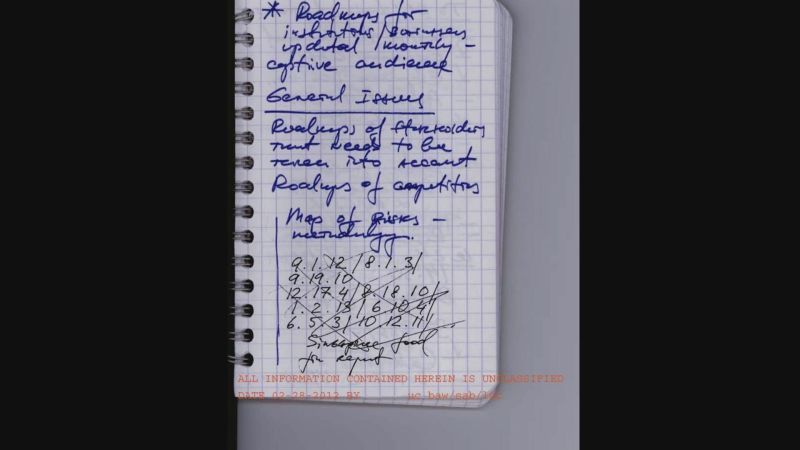 * Roadmaps for
institutions/businesses
updated monthly –
captive audience
General Issues
Roadmaps of stakeholders
that needs to be
taken into account
Roadmaps of competitors
Map of Risks –
methodology.
9.1.12/8.1.3/
9.19.10
12.17.4/8.18.10/
1.2.13/6.10.4/
6.5.3/10.12.11/
food
for report
ALL INFORMATION CONTAINED HEREIN IS UNCLASSIFIED
DATE 02-28-2012 BY uc baw/sab/lsc